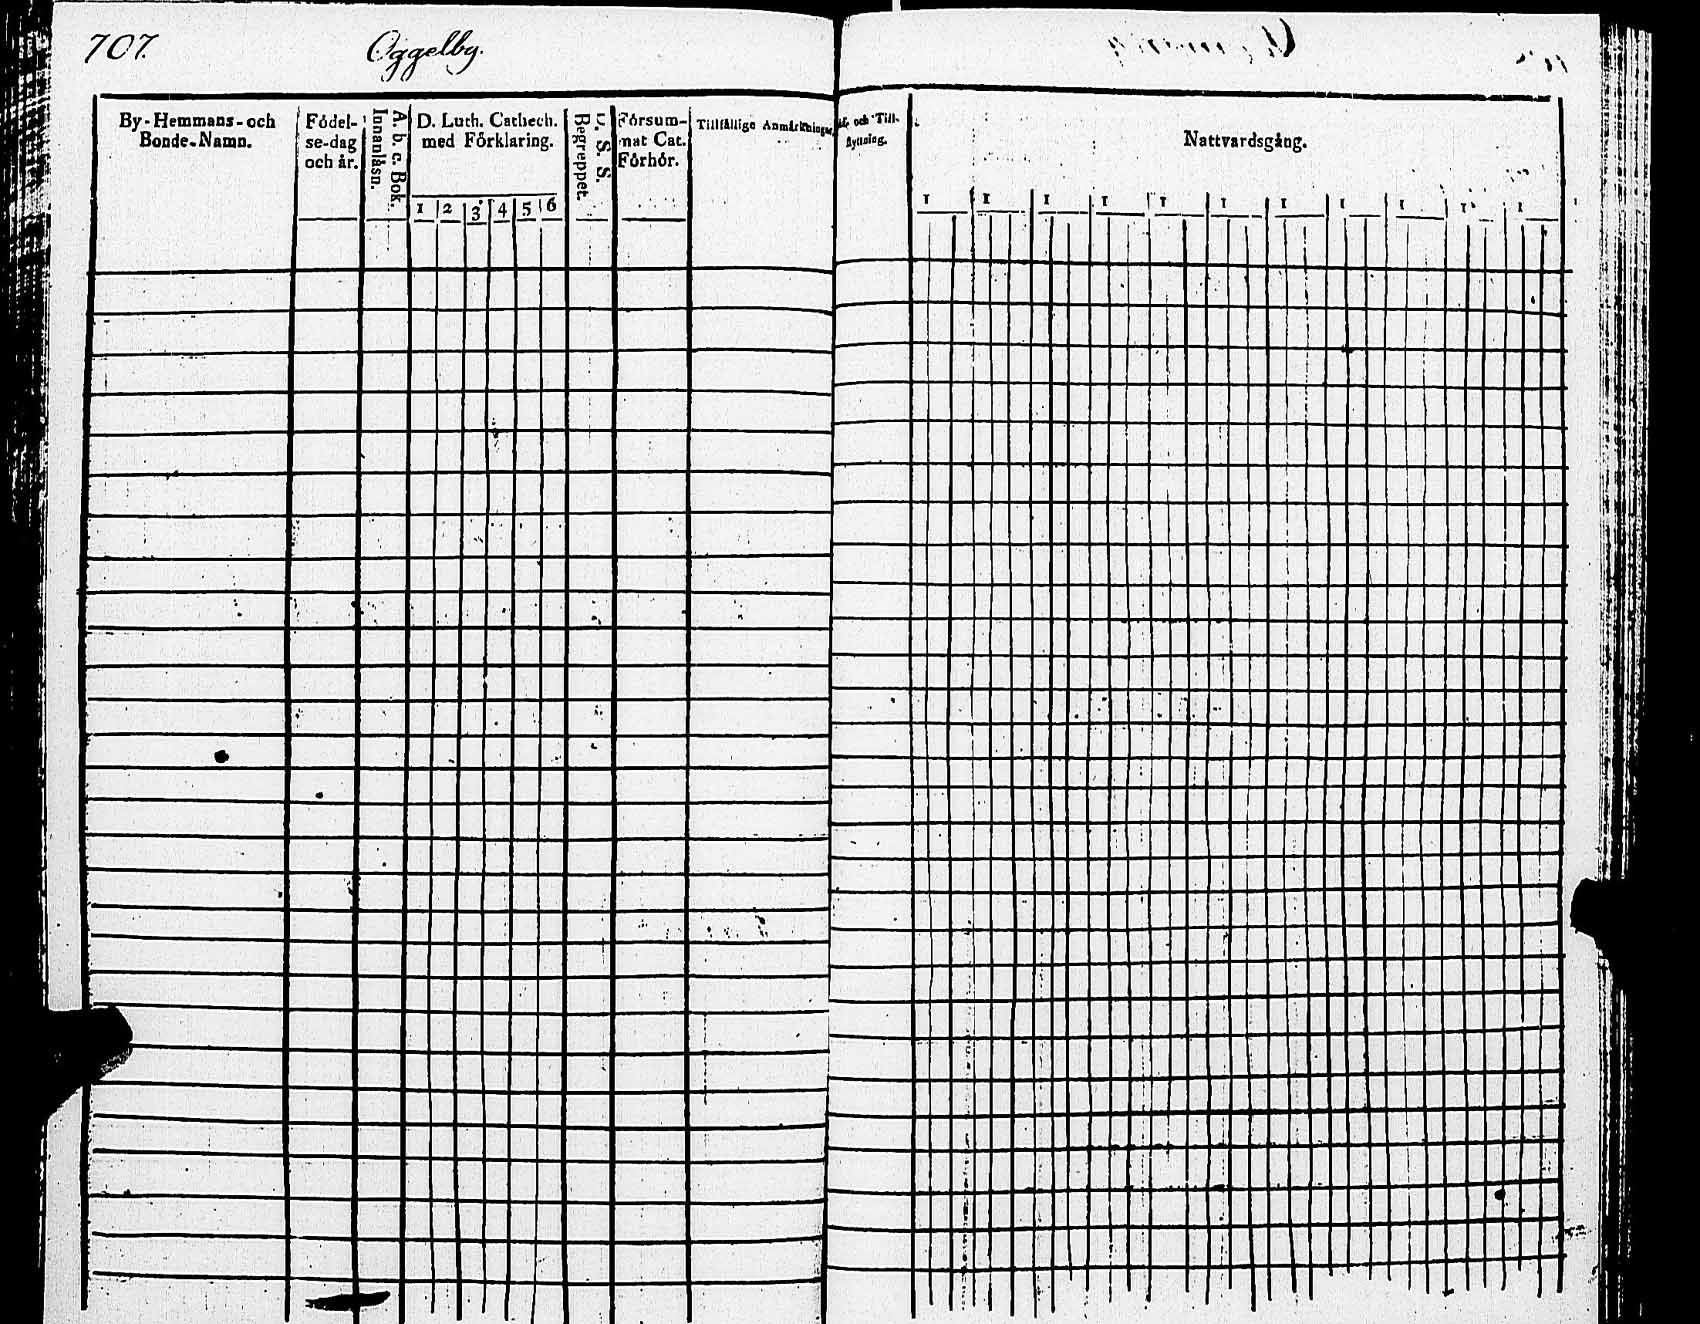 707.
Oggelby.
By-Hemmans-och
Bonde-Namn.
Födel-
se-dag
och år.
A. b. c. Bok.
Innanläsn.
D. Luth. Cathech.
med Förklaring.
1 2 3 4 5 6
D. S. S.
Begreppet.
Försum-
mat Cat.
Förhör.
Tillfällige Anmärkningar.
Af- och Till-
flyttning.
Nattvardsgång.
1 1 1 1 1 1 1 1 1 1 1